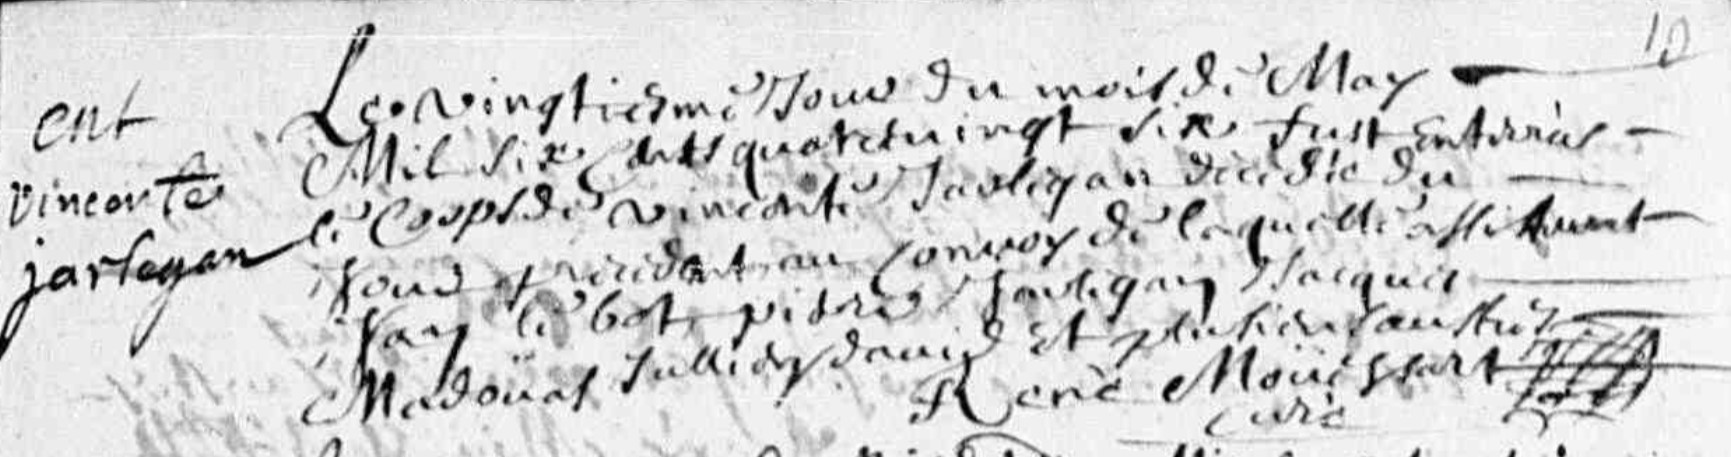 10
ent
vincente
jarlegan
Le vingtiesme Jour du mois de May
Mil six cents quatre vingt six fust enterrée
le Corps de vincente Jarlegan décédée du
Jour précédent au convoy de laquelle assisterent
Jan le bot, pierre Jarlegan Jacques
Madoüas Jullien david et plusieurs aultres
René Moüessart
curé